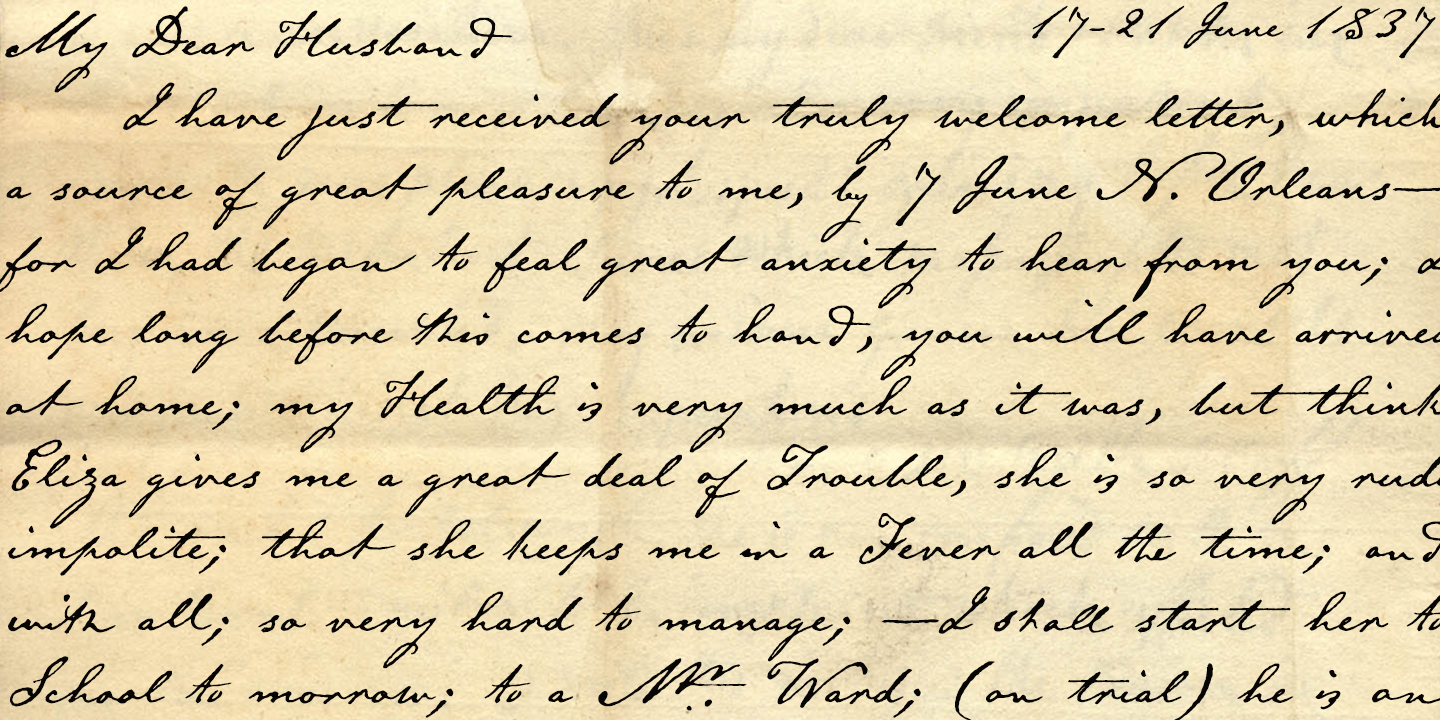 My Dear Husband 17-21 June 1837
I have just received your truly welcome letter, which
a source of great pleasure to me, by 7 June N. Orleans—
for I had began to feal great anxiety to hear from you; &
hope long before this comes to hand, you will have arrived
at home; my Health is very much as it was, but think
Eliza gives me a great deal of Trouble, she is so very rude
impolite; that she keeps me in a Fever all the time; and
with all; so very hard to manage; —I shall start her to
School to morrow; to a Mr. Ward; (on trial) he is an